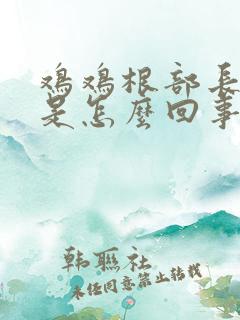 鸡鸡根部長
是怎麼回事
韩联社
未经同意禁止转载